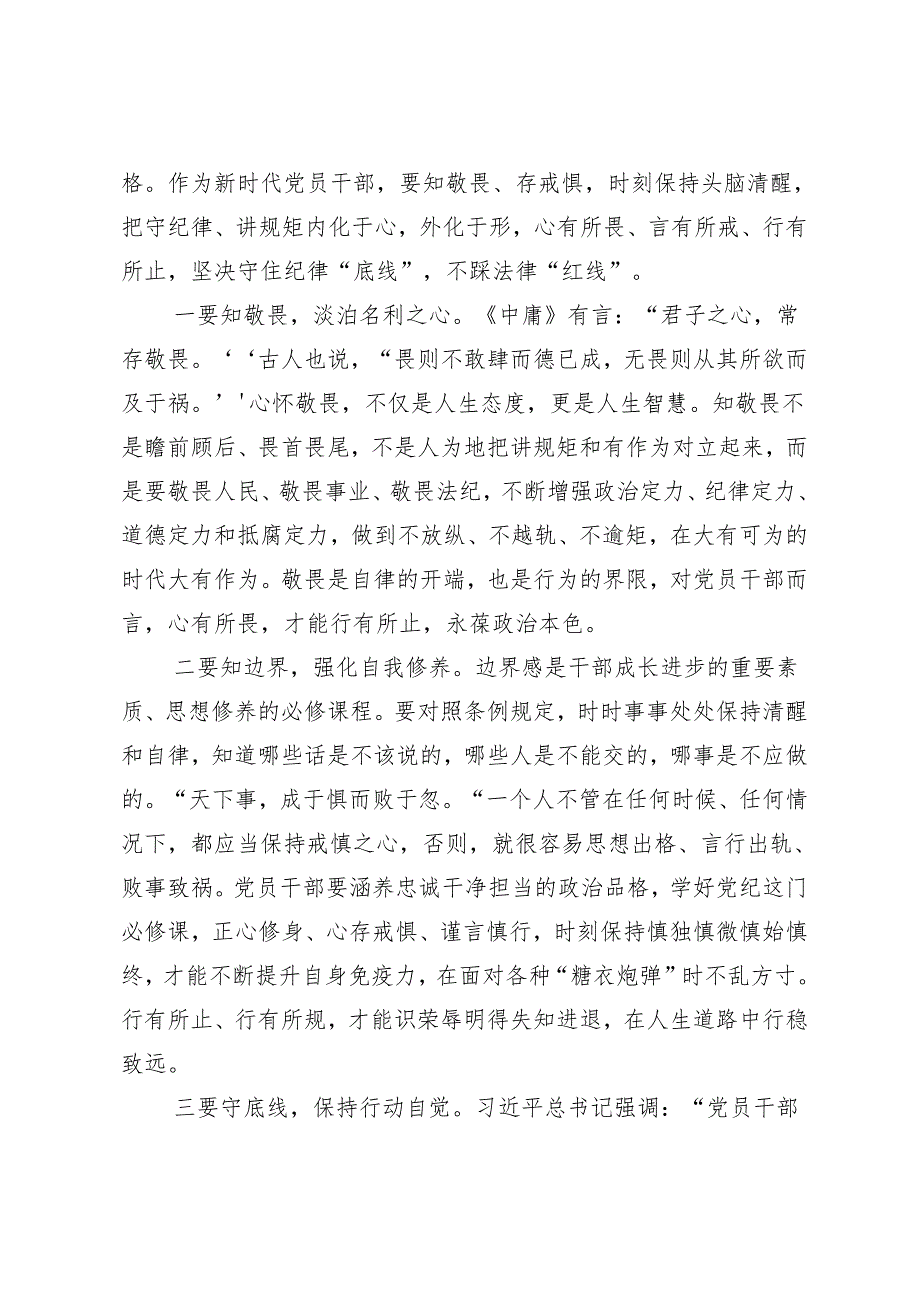 格。作为新时代党员干部，要知敬畏、存戒惧，时刻保持头脑清醒，
把守纪律、讲规矩内化于心，外化于形，心有所畏、言有所戒、行有
所止，坚决守住纪律“底线”，不踩法律“红线”。
一要知敬畏，淡泊名利之心。《中庸》有言：“君子之心，常
存敬畏。‘‘古人也说，“畏则不敢肆而德已成，无畏则从其所欲而
及于祸。’'心怀敬畏，不仅是人生态度，更是人生智慧。知敬畏不
是瞻前顾后、畏首畏尾，不是人为地把讲规矩和有作为对立起来，而
是要敬畏人民、敬畏事业、敬畏法纪，不断增强政治定力、纪律定力、
道德定力和抵腐定力，做到不放纵、不越轨、不逾矩，在大有可为的
时代大有作为。敬畏是自律的开端，也是行为的界限，对党员干部而
言，心有所畏，才能行有所止，永葆政治本色。
二要知边界，强化自我修养。边界感是干部成长进步的重要素
质、思想修养的必修课程。要对照条例规定，时时事事处处保持清醒
和自律，知道哪些话是不该说的，哪些人是不能交的，哪事是不应做
的。“天下事，成于惧而败于忽。“一个人不管在任何时候、任何情
况下，都应当保持戒慎之心，否则，就很容易思想出格、言行出轨、
败事致祸。党员干部要涵养忠诚干净担当的政治品格，学好党纪这门
必修课，正心修身、心存戒惧、谨言慎行，时刻保持慎独慎微慎始慎
终，才能不断提升自身免疫力，在面对各种“糖衣炮弹”时不乱方寸。
行有所止、行有所规，才能识荣辱明得失知进退，在人生道路中行稳
致远。
三要守底线，保持行动自觉。习近平总书记强调：“党员干部